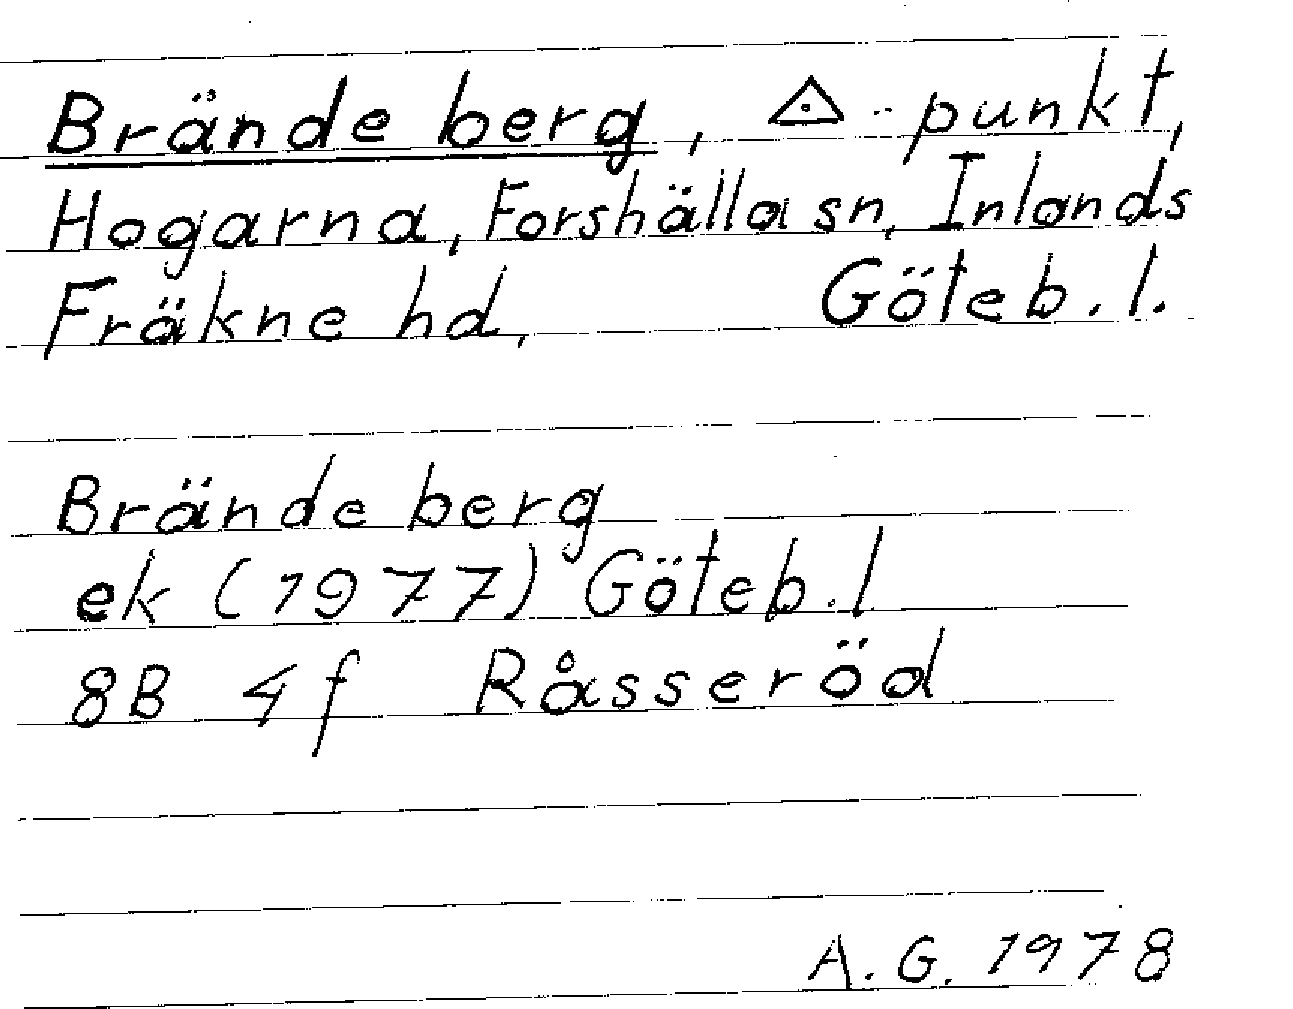 Brände berg, △-punkt,
Hogarna, Forshälla sn, Inlands
Fräkne hd, Göteb. l.
Brände berg
ek (1977) Göteb. l
8B 4f Råsseröd
A. G. 1978